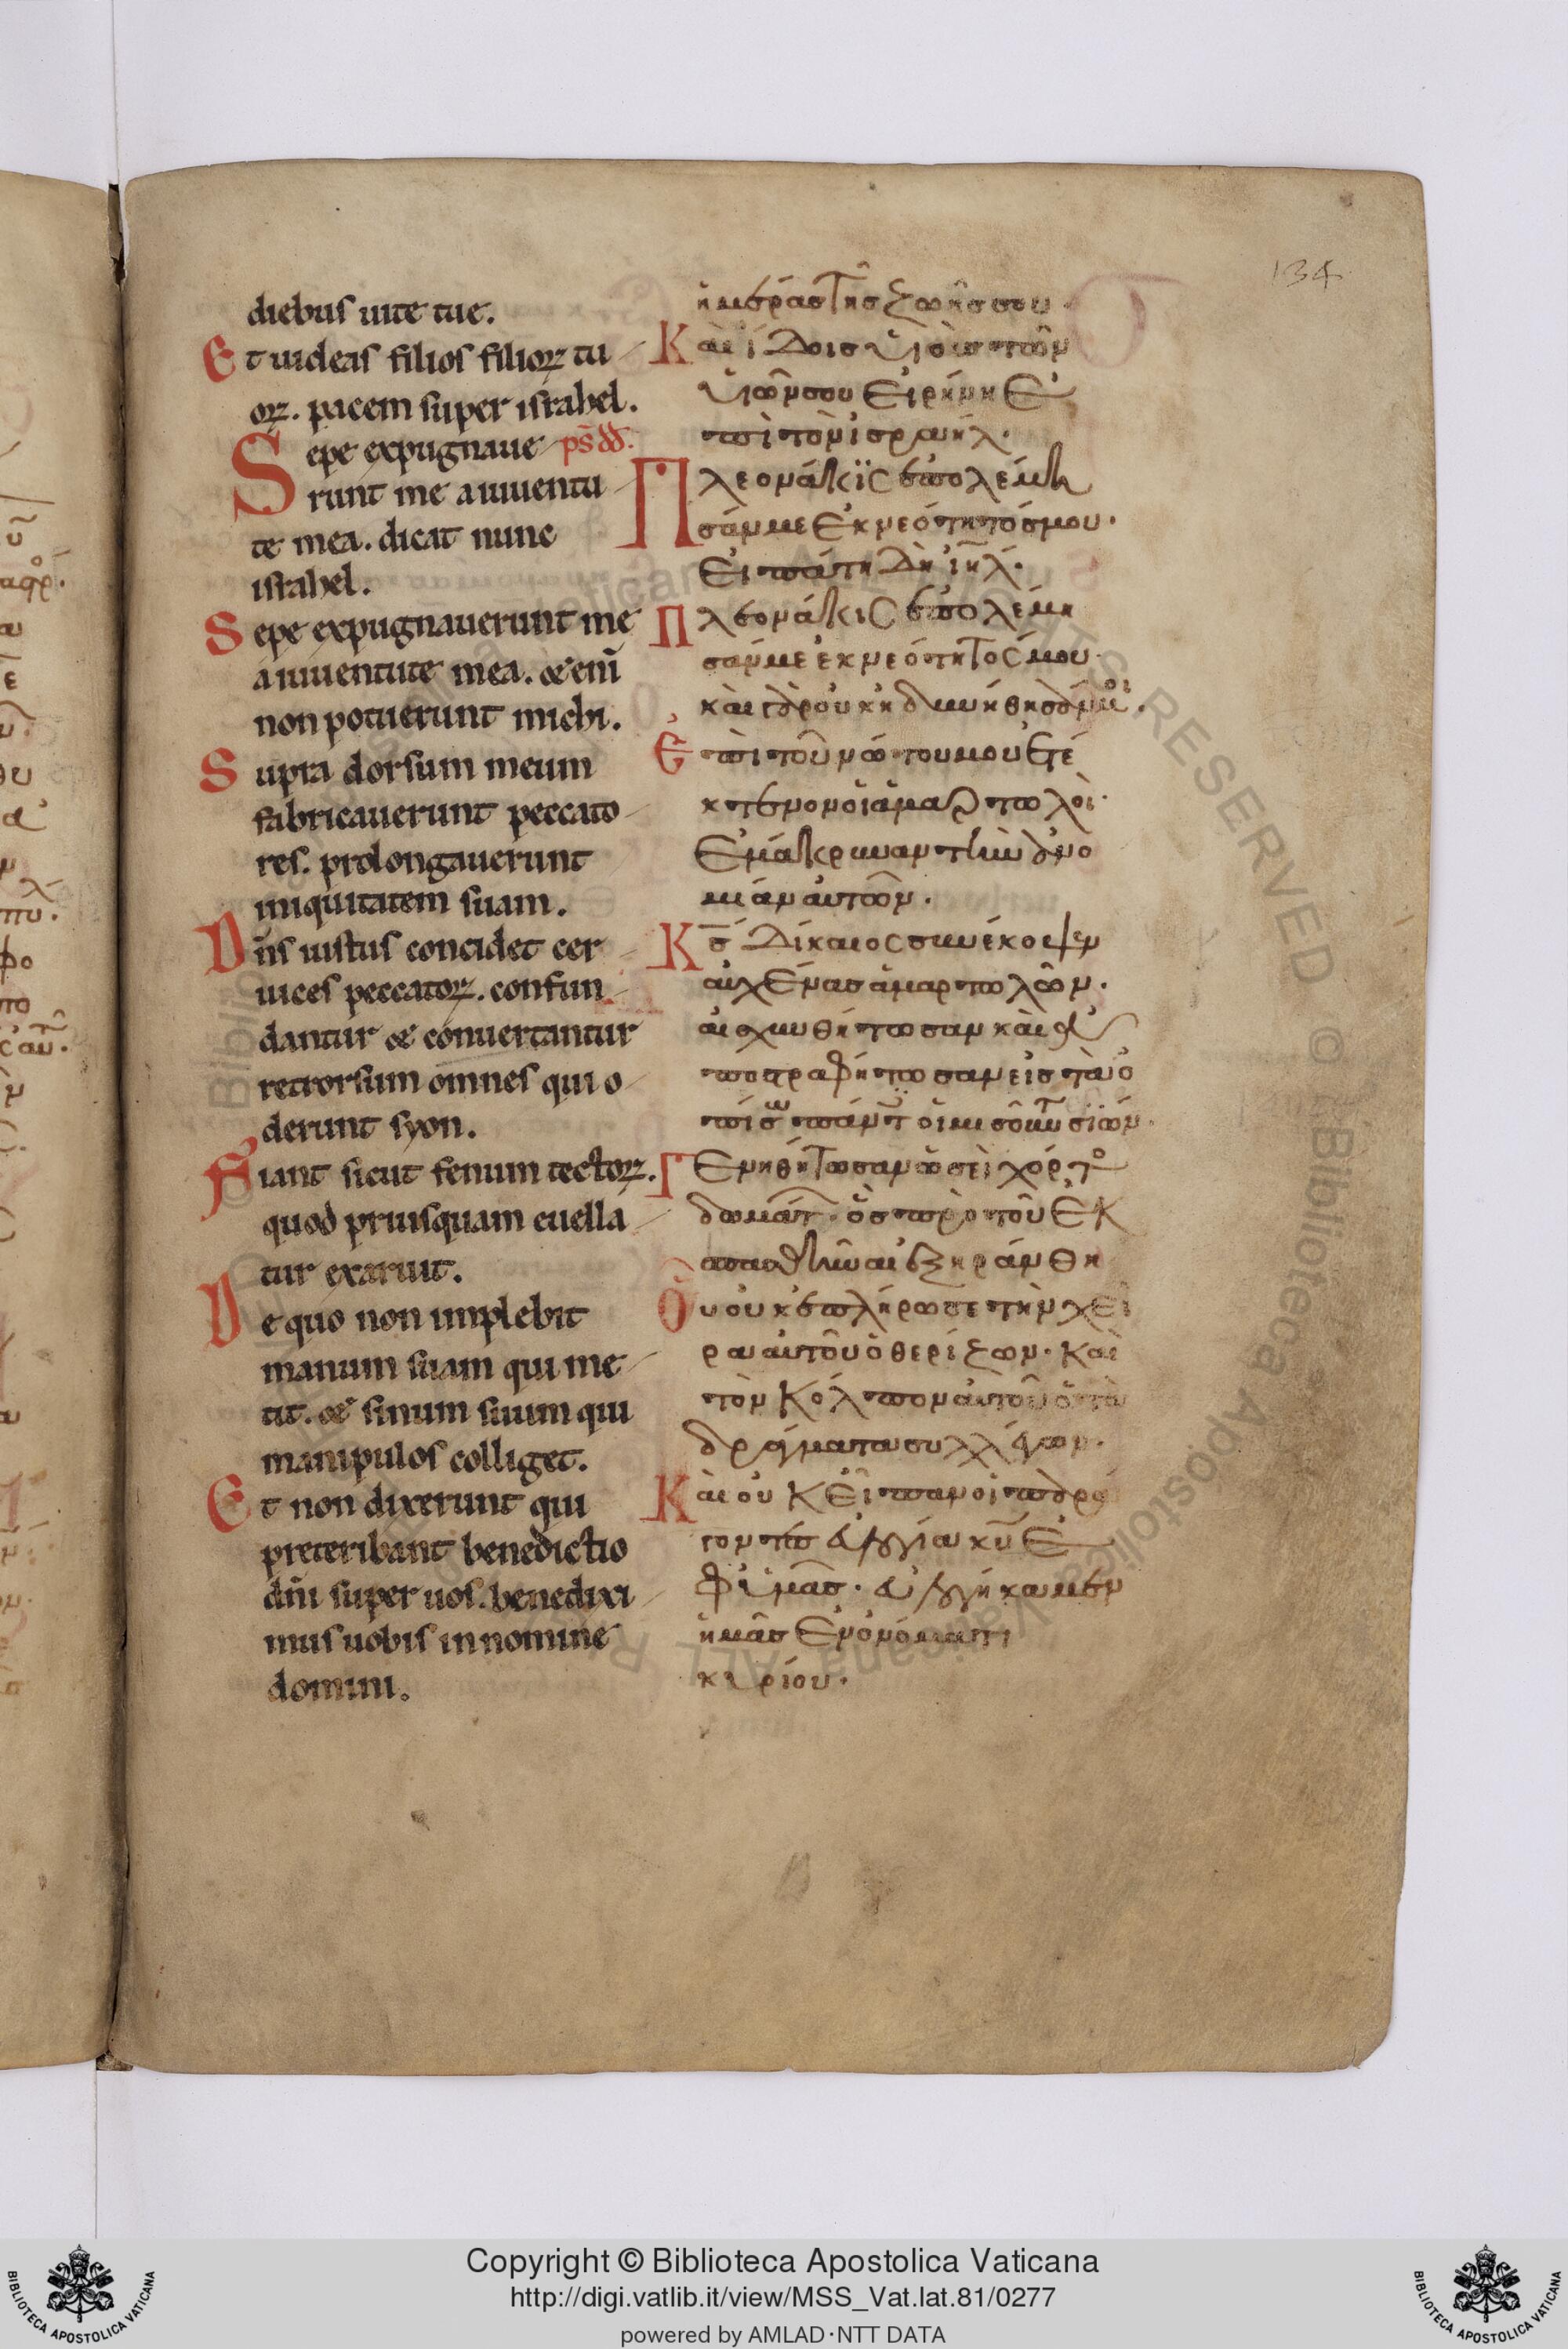 134
diebus uite tue.
Et uideas filios filioꝝ tu
oꝝ. pacem super israhel.
Sepe expugnaue p̄s d̄d.
runt me a iuuentu
te mea. dicat nunc
israhel.
Sepe expugnauerunt me
a iuuentute mea. & eni̅
non potuerunt michi.
Supra dorsum meum
fabricauerunt peccato
res. prolongauerunt
iniquitatem suam.
Dn̅s iustus concidet cer
uices peccatoꝝ. confun
dantur & conuertantur
retrorsum omnes qui o
derunt syon.
Fiant sicut fenum tectoꝝ.
quod priusquam euella
tur exaruit.
De quo non implebit
manum suam qui me
tit. & sinum suum qui
manipulos colliget.
Et non dixerunt qui
preteribant benedictio
dn̅i super uos. benedixi
mus uobis in nomine
domini.
ἡμέρας τῆς ζωῆς σου.
Καὶ ἴδοις υἱοὺς τῶν
υἱῶν σου εἰρήνη ἐ
πὶ τὸν ἰσραήλ.
Πλεονάκϊς ἐπολέμη
σάν με ἐκ νεότητός μου.
Εἰπάτη δὴ ἰηλ.
Πλεονάκις ἐπολέμη
σάν με ἐκ νεότητος μου
καὶ γὰρ οὐκ ἠδυνήθησάν μοι.
Ἐπὶ τοῦ νώτου μου ἐτέ
κτενον οἱ ἁμαρτωλοὶ.
Ἐμάκρυναν τὴν ἀνο
μίαν αὐτῶν.
Κς̅ δίκαιος συνέκοψεν
αὐχένας ἁμαρτωλῶν.
αἰσχυνθήτωσαν καὶ ἀ
ποστραφήτωσαν εἰς τὰ ὀ
πίσω πάντες οἱ μισοῦντ σιών.
Γενηθήτωσαν ὡσεὶ χόρτο
δωμάτ. ὃς πρὸ τοῦ ἐκ
σπασθῆναι ἐξηράνθη
Οὗ οὐκ ἐπλήρωσε τὴν χεῖ
ρα αὐτοῦ ὁ θερίζων. καὶ
τὸν κόλπον αὐτοῦ ὁ τὰ
δράγματα συλλέγων.
Καὶ οὐκ εἶπαν οἱ παρά
γοντες εὐλογία κυ̅ ἐ
φ ὑμᾶς. εὐλογήκαμεν
ἡμᾶς ἐν ὀνόματι
κυρίου.
Copyright © Biblioteca Apostolica Vaticana
http://digi.vatlib.it/view/MSS_Vat.lat.81/0277
powered by AMLAD·NTT DATA
BIBLIOTECA APOSTOLICA VATICANA
BIBLIOTECA APOSTOLICA VATICANA